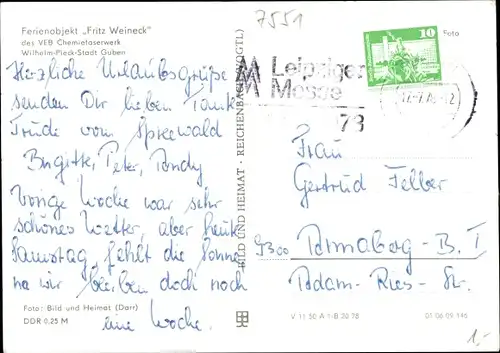 7551
Ferienobjekt „Fritz Weineck"
des VEB Chemiefaserwerk
Wilhelm-Pieck-Stadt Guben
Herzliche Urlaubsgrüße
senden Dir lieben Tante
Trude vom Spreewald
Birgitte, Peter,
Vorige Woche war sehr
schönes Wetter, aber heute
Samstag, fehlt die Sonne
na wir bleiben doch noch
eine Woche.
Foto: Bild und Heimat (Darr)
DDR 0,25 M
BILD UND HEIMAT · REICHENBACH (VOGTL)
Leipziger
Messe
10
Foto
Frau
Gertrud Felber
9300 Annaberg-B. I
Adam-Ries-Str.
V 11 50 A 1-B 30/78
01 06 09 146
1,-